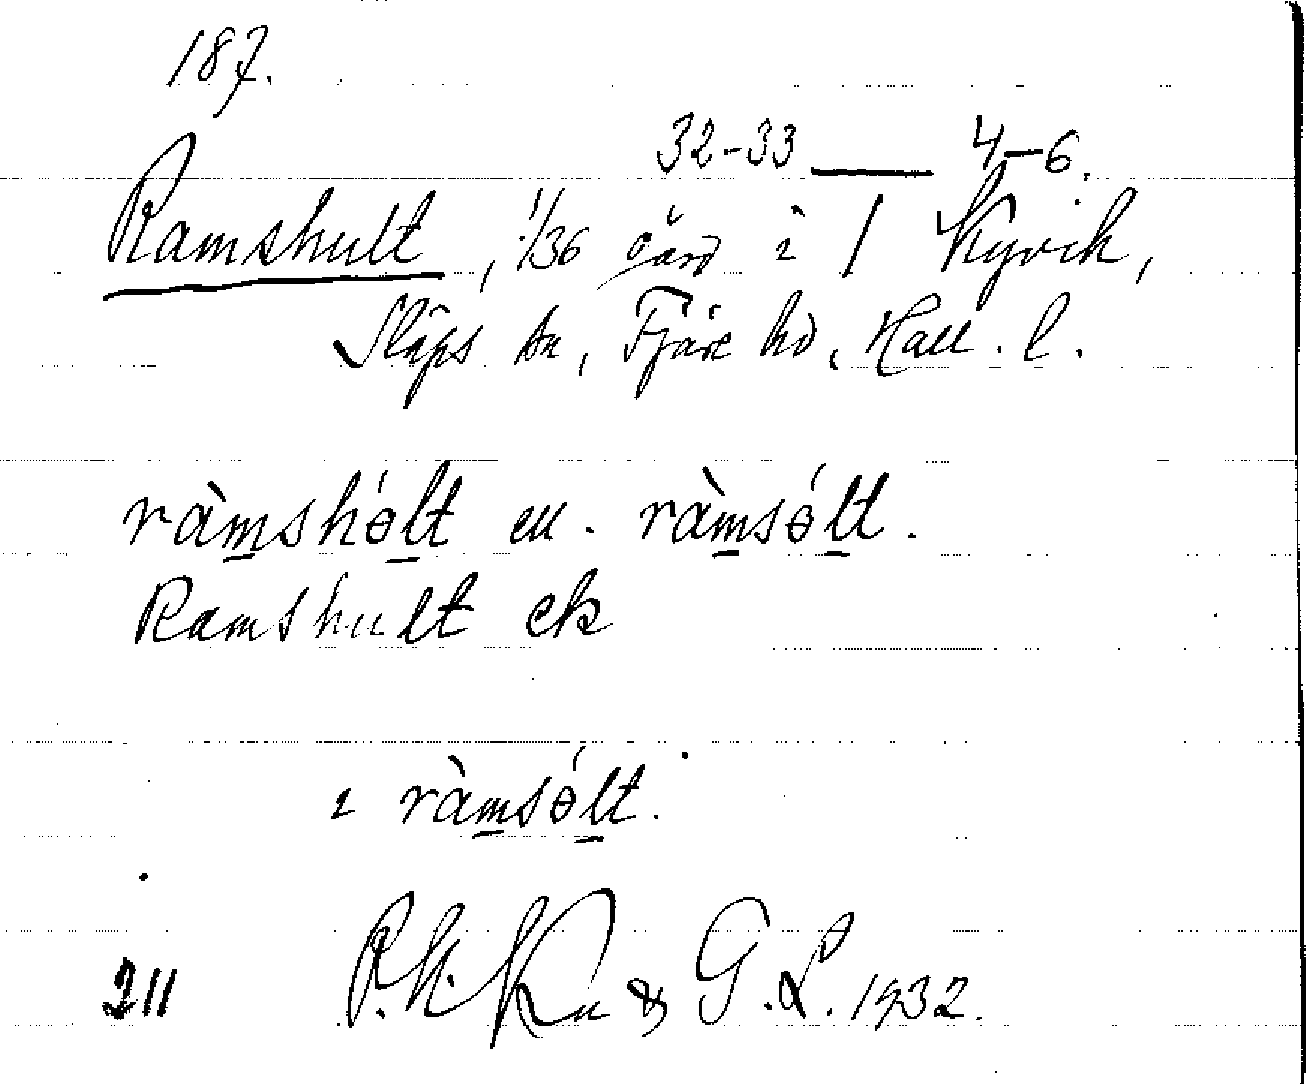 187.
32-33 — 4-6.
Ramshult, 1/36 gård i 1 Kyvik,
Släps sn, Fjäre hd, Hall. l.
ràm̲shɵ́l̲t en. ràm̲sɵ́l̲t.
Ramshult ek
i ràm̲sɵ́l̲t.
211 & G.L. 1932.